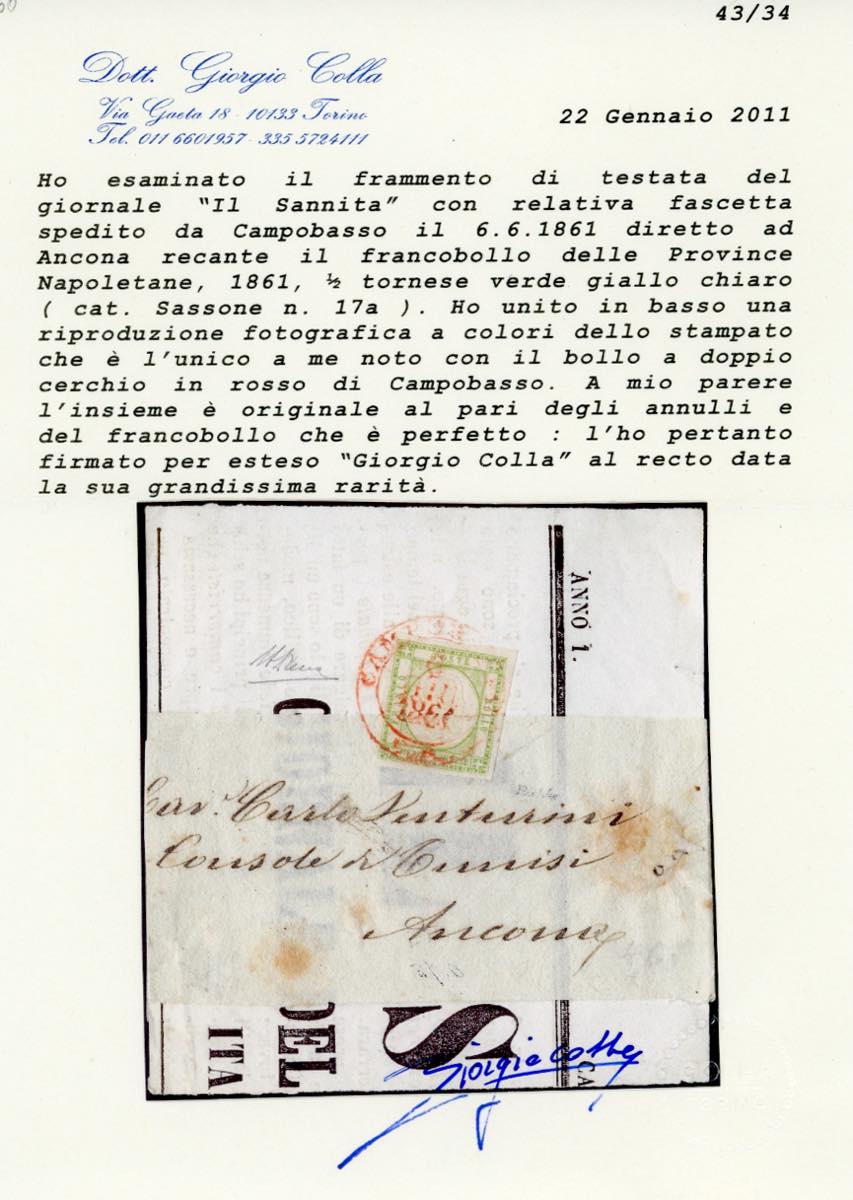 43/34
Dott. Giorgio Colla
Via Gaeta 18 - 10133 Torino
Tel. 011 6601957 - 335 5724111
22 Gennaio 2011
Ho esaminato il frammento di testata del
giornale “Il Sannita” con relativa fascetta
spedito da Campobasso il 6.6.1861 diretto ad
Ancona recante il francobollo delle Province
Napoletane, 1861, ½ tornese verde giallo chiaro
( cat. Sassone n. 17a ). Ho unito in basso una
riproduzione fotografica a colori dello stampato
che è l’unico a me noto con il bollo a doppio
cerchio in rosso di Campobasso. A mio parere
l’insieme è originale al pari degli annulli e
del francobollo che è perfetto : l’ho pertanto
firmato per esteso “Giorgio Colla” al recto data
la sua grandissima rarità.
ANNO 1.
POSTE
BOLLO
1861
Cav.r Carlo Venturini
Console di Tunisi
Ancona
DEL
ITA
S
CA
Giorgio Colla